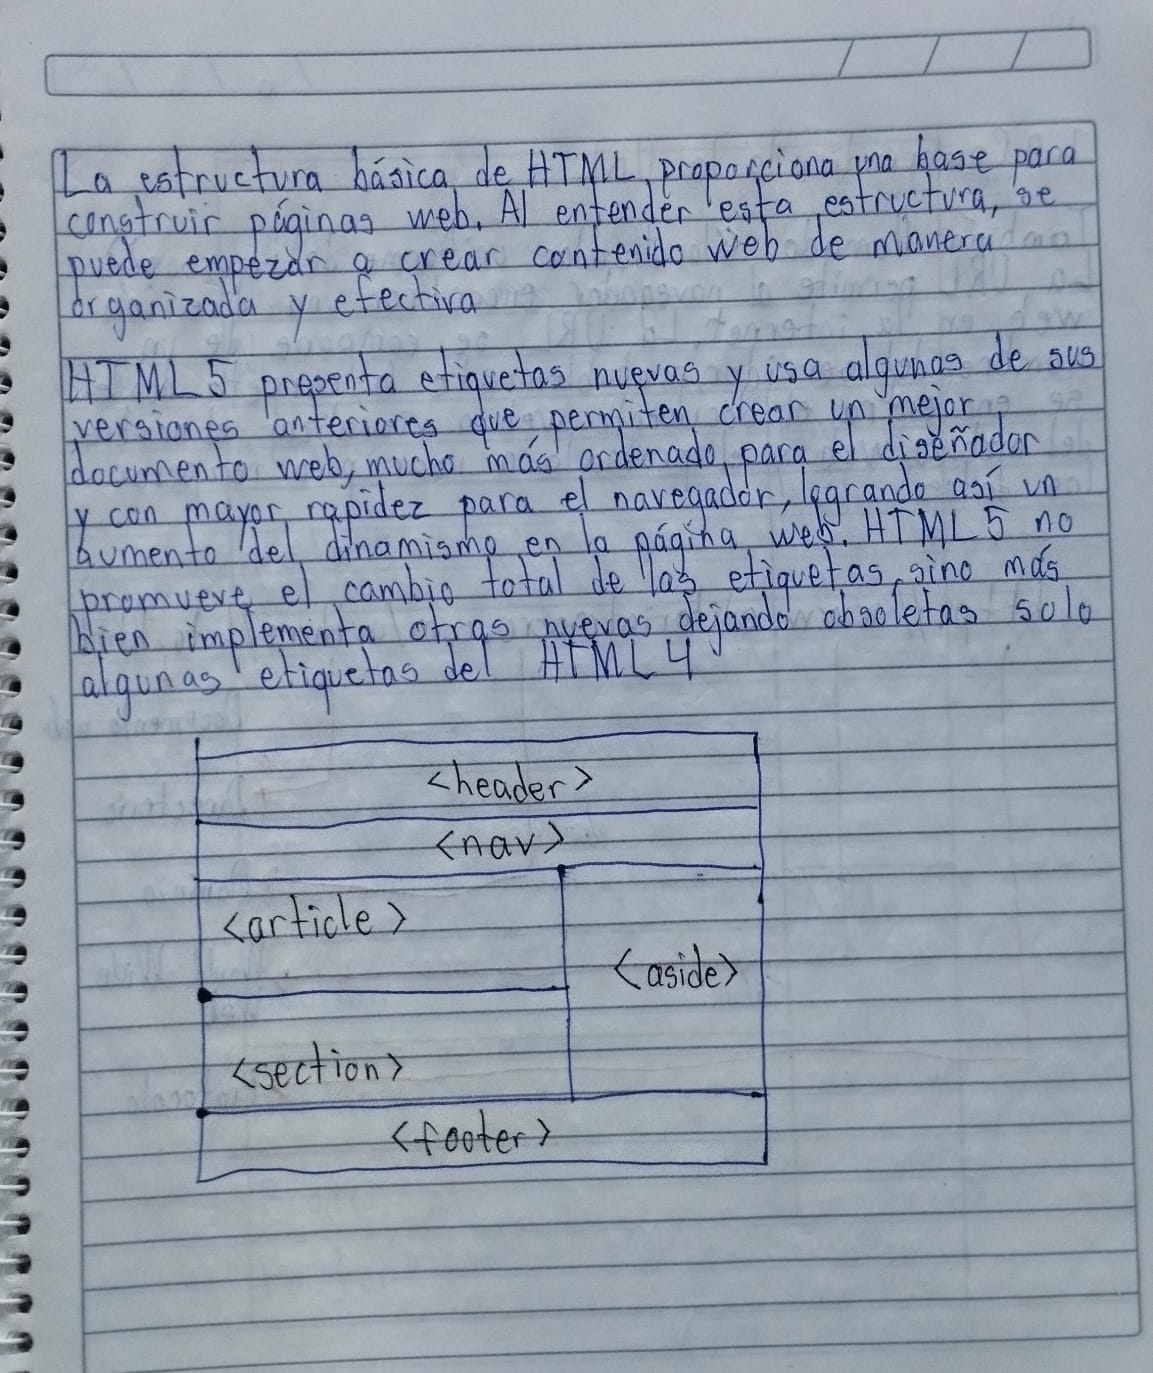 La estructura básica de HTML proporciona una base para
construir páginas web. Al entender esta estructura, se
puede empezar a crear contenido web de manera
organizada y efectiva
HTML5 presenta etiquetas nuevas y usa algunas de sus
versiones anteriores que permiten crear un mejor
documento web, mucho más ordenado para el diseñador
y con mayor rapidez para el navegador, logrando así un
aumento del dinamismo en la página web. HTML5 no
promueve el cambio total de las etiquetas sino más
bien implementa otras nuevas dejando obsoletas solo
algunas etiquetas del HTML4
<header>
<nav>
<article>
<aside>
<section>
<footer>